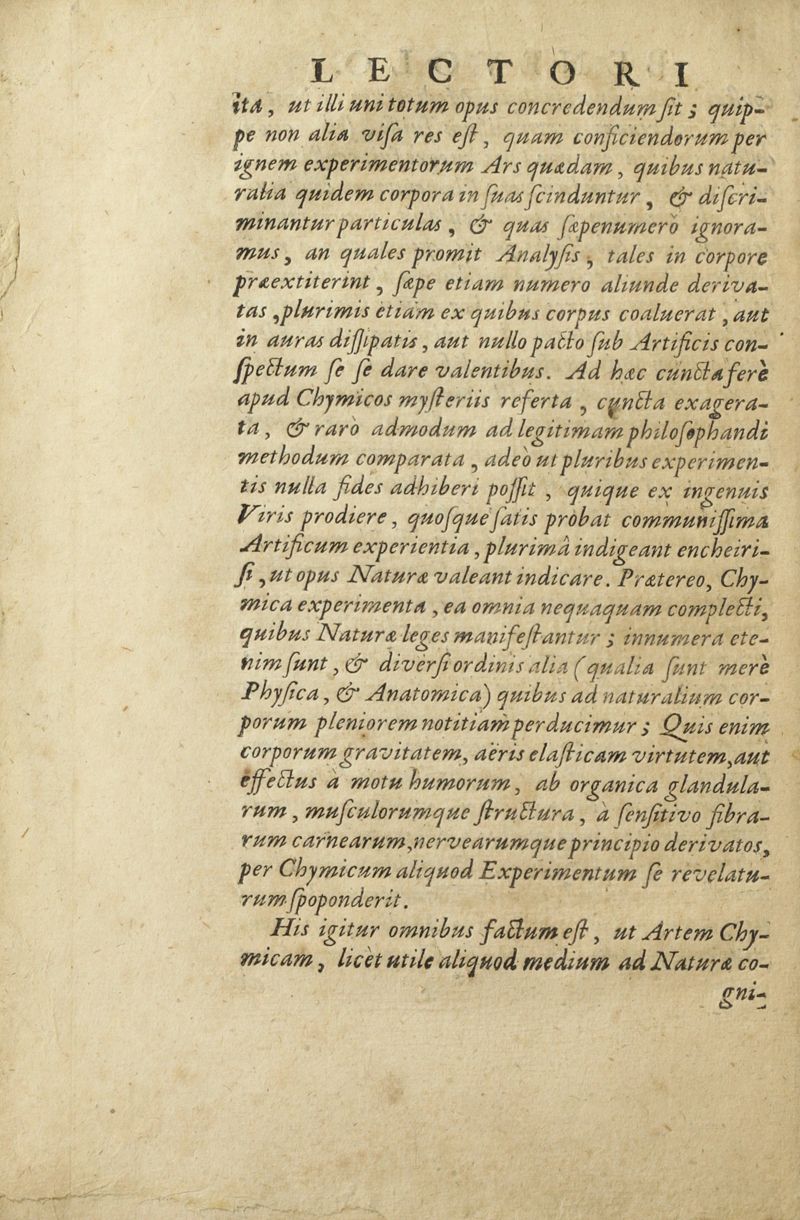 LECTORI
ita, ut illi uni totum opus concredendum ſit; quip-
pe non alia viſa res eſt, quam conficiendorum per
ignem experimentorum Ars quædam, quibus natu-
ralia quidem corpora in ſuas ſcinduntur, & diſcri-
minantur particulas, & quas ſæpenumerò ignora-
mus, an quales promit Analyſis, tales in corpore
præextiterint, ſæpe etiam numero aliunde deriva-
tas, plurimis etiàm ex quibus corpus coaluerat, aut
in auras diſſipatis, aut nullo pacto ſub Artificis con-
ſpectum ſe ſe dare valentibus. Ad hæc cuncta ferè
apud Chymicos myſteriis referta, cuncta exagera-
ta, & rarò admodum ad legitimam philoſophandi
methodum comparata, adeò ut pluribus experimen-
tis nulla fides adhiberi poſſit, quique ex ingenuis
Viris prodiere, quoſque ſatis probat communiſſima
Artificum experientia, plurimâ indigeant encheiri-
ſi, ut opus Naturæ valeant indicare. Prætereo, Chy-
mica experimenta, ea omnia nequaquam complecti,
quibus Naturæ leges manifeſtantur; innumera ete-
nim ſunt, & diverſi ordinis alia (qualia ſunt merè
Phyſica, & Anatomica) quibus ad naturalium cor-
porum pleniorem notitiam perducimur; Quis enim
corporum gravitatem, aëris elaſticam virtutem, aut
effectus à motu humorum, ab organica glandula-
rum, muſculorumque ſtructura, à ſenſitivo fibra-
rum carnearum, nervearumque principio derivatos,
per Chymicum aliquod Experimentum ſe revelatu-
rum ſpoponderit.
His igitur omnibus factum eſt, ut Artem Chy-
micam, licèt utile aliquod medium ad Naturæ co-
gni-